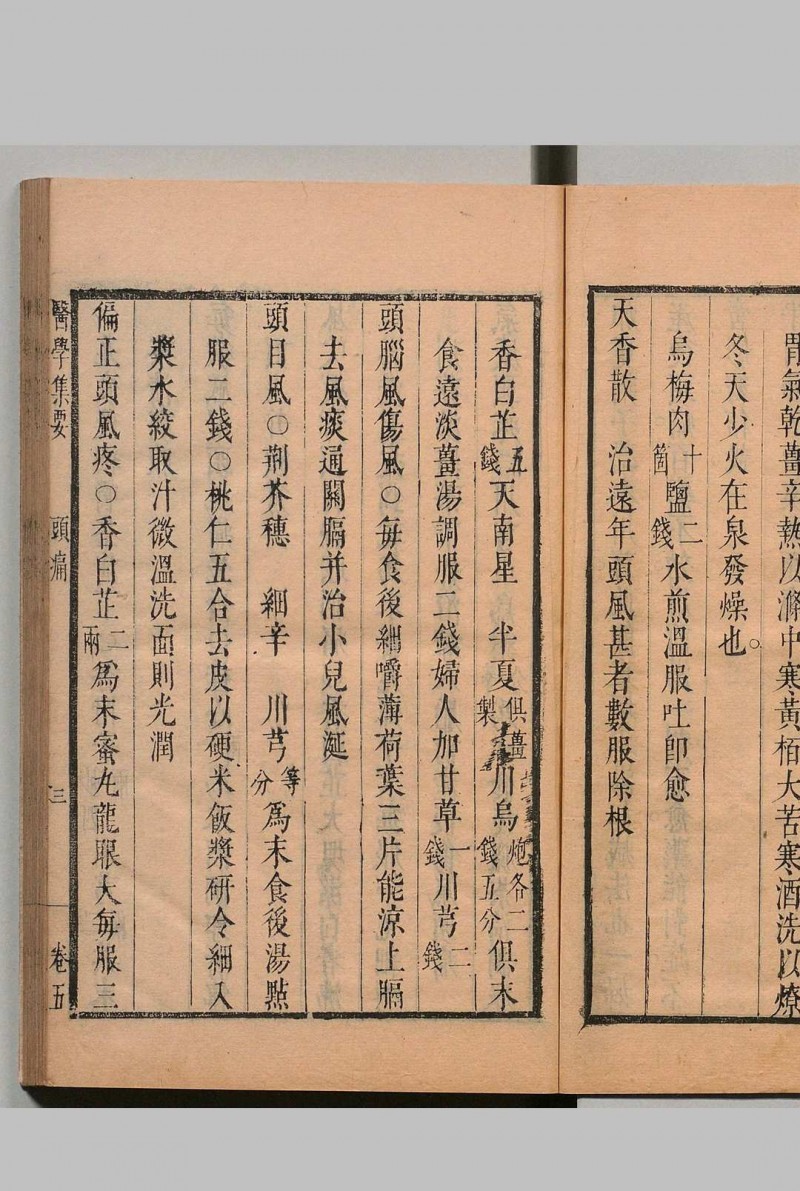 胃氣乾薑辛熱以滌中寒黃栢大苦寒酒洗以燎
冬天少火在泉發燥也○
烏梅肉十箇鹽二錢水煎溫服吐卽愈
天香散　治遠年頭風甚者數服除根
香白芷五錢天南星　半夏俱薑製川烏炮各二錢五分俱末
食遠淡薑湯調服二錢婦人加甘草一錢川芎二錢
頭腦風傷風○每食後細嚼薄荷葉三片能涼上膈
去風痰通關膈并治小兒風涎
頭目風○荆芥穗　細辛　川芎等分爲末食後湯點
服二錢○桃仁五合去皮以硬米飯漿研令細入
漿水絞取汁微溫洗面則光潤
偏正頭風疼○香白芷二兩爲末蜜丸龍眼大每服三
醫學集要　頭痛　三　卷五